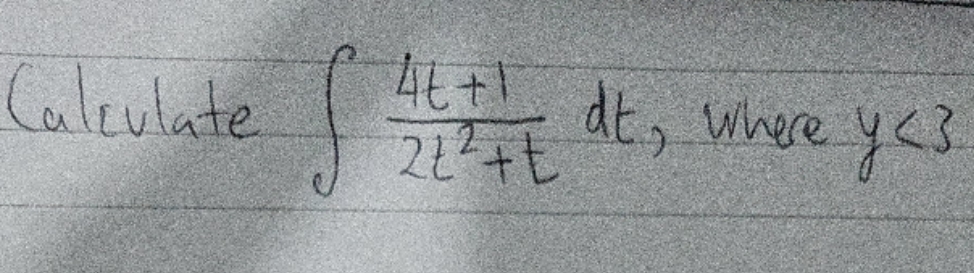 Calculate ∫ (4t+1)/(2t²+t) dt, where y<3